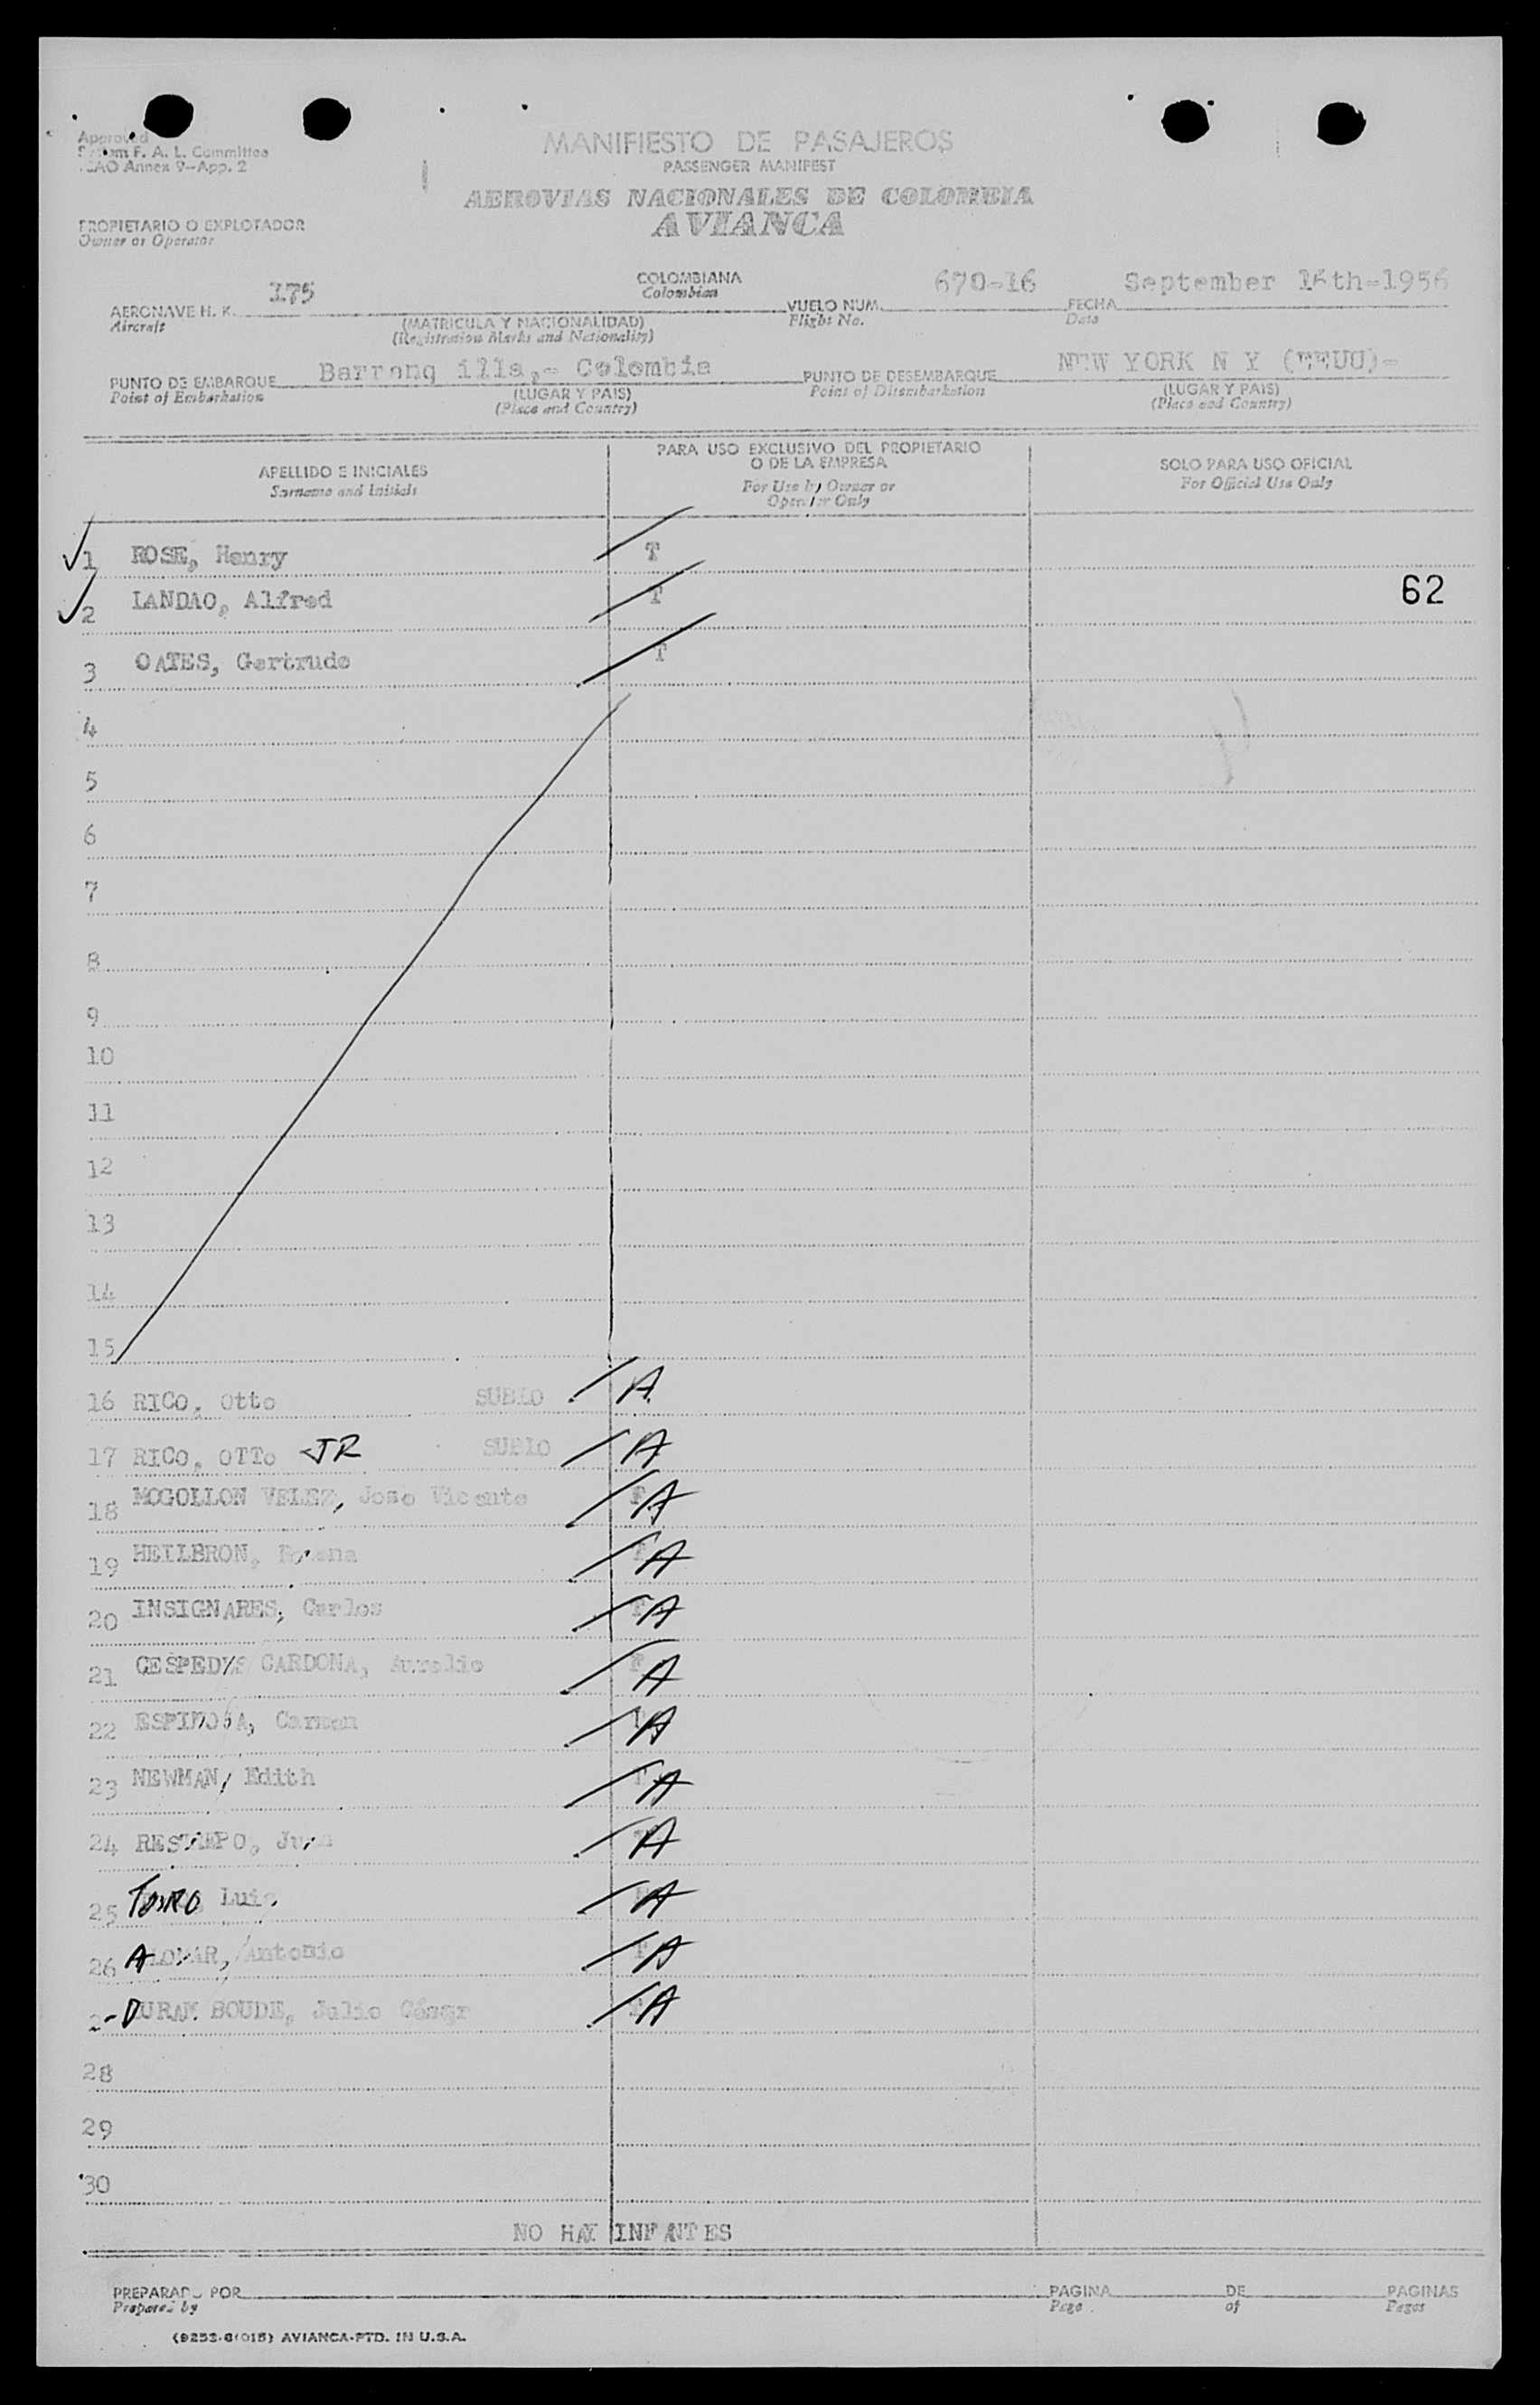 Approved
F. A. L. Committee
ICAO Annex 9-App. 2
MANIFIESTO DE PASAJEROS
PASSENGER MANIFEST
AEROVIAS NACIONALES DE COLOMBIA
AVIANCA
PROPIETARIO O EXPLOTADOR
Owner or Operator
AERONAVE H. K. 175
Aircraft
(MATRICULA Y NACIONALIDAD)
(Registration Marks and Nationality)
COLOMBIANA
Colombian
VUELO NUM. 670-16
Flight No.
FECHA September 16th-1956
Date
PUNTO DE EMBARQUE Barranq illa,- Colombia
Point of Embarkation
(LUGAR Y PAIS)
(Place and Country)
PUNTO DE DESEMBARQUE NEW YORK N Y (EEUU)-
Point of Disembarkation
(LUGAR Y PAIS)
(Place and Country)
APELLIDO E INICIALES
Surname and Initials
PARA USO EXCLUSIVO DEL PROPIETARIO
O DE LA EMPRESA
For Use by Owner or
Operator Only
SOLO PARA USO OFICIAL
For Official Use Only
1 ROSE, Henry T
2 LANDAO, Alfred T
62
3 OATES, Gertrude T
4
5
6
7
8
9
10
11
12
13
14
15
16 RICO, Otto SUBIO A
17 RICO, OTTo JR SUBIO A
18 MOGOLLON VELEZ, Jose Vicente A
19 HEILBRON, A
20 INSIGNARES, Carlos A
21 CESPEDES CARDONA, Aurelio A
22 ESPINOSA, Carmen A
23 NEWMAN, Edith A
24 RESTREPO, Juan A
25 TORO Luis A
26 ALOMAR, Antonio A
DURAN BOUDE, Julio César A
28
29
30
NO HAY INFANTES
PREPARADO POR
Prepared by
PAGINA DE PAGINAS
Page of Pages
(9253-8(015) AVIANCA-PTD. IN U.S.A.